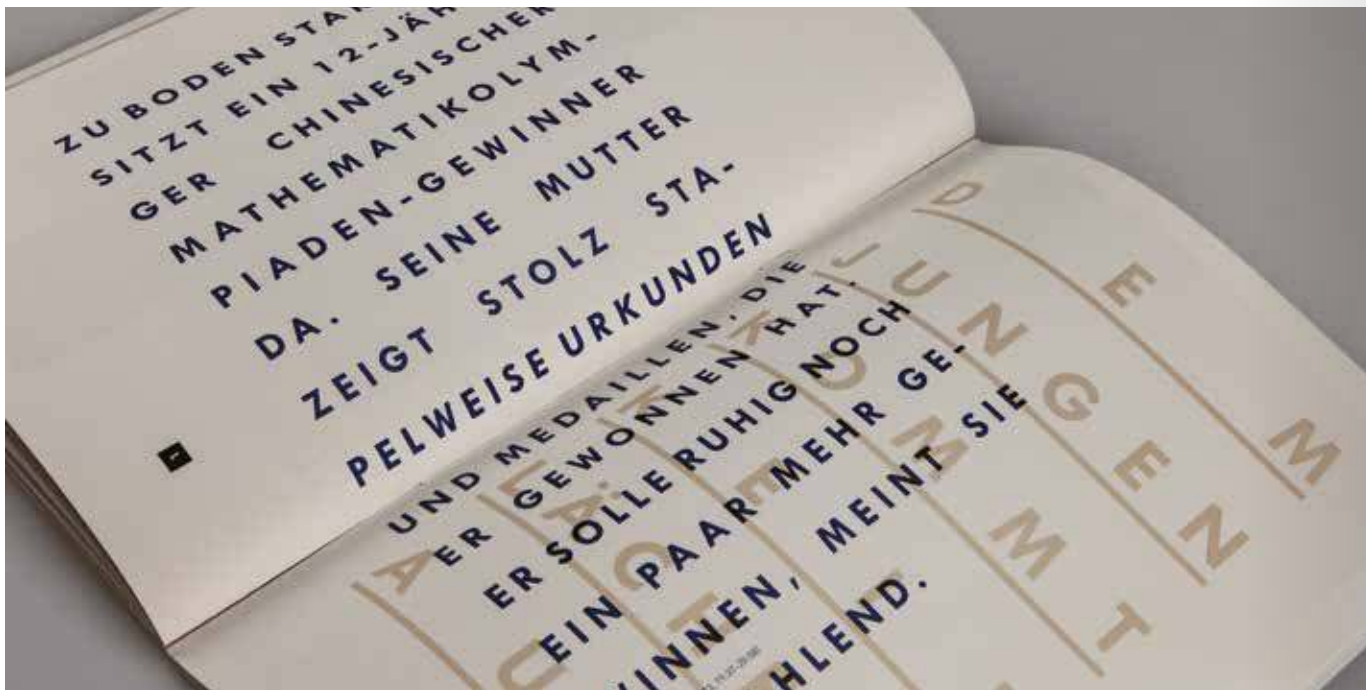 ZU BODEN STA
SITZT EIN 12-JÄH
GER CHINESISCHER
MATHEMATIKOLYM-
PIADEN-GEWINNER
DA. SEINE MUTTER
ZEIGT STOLZ STA-
PELWEISE URKUNDEN
UND MEDAILLEN, DIE
ER GEWONNEN HAT.
ER SOLLE RUHIG NOCH
EIN PAAR MEHR GE-
INNEN, MEINT SIE
HLEND.
DEM
JUNGEN
KOMMT